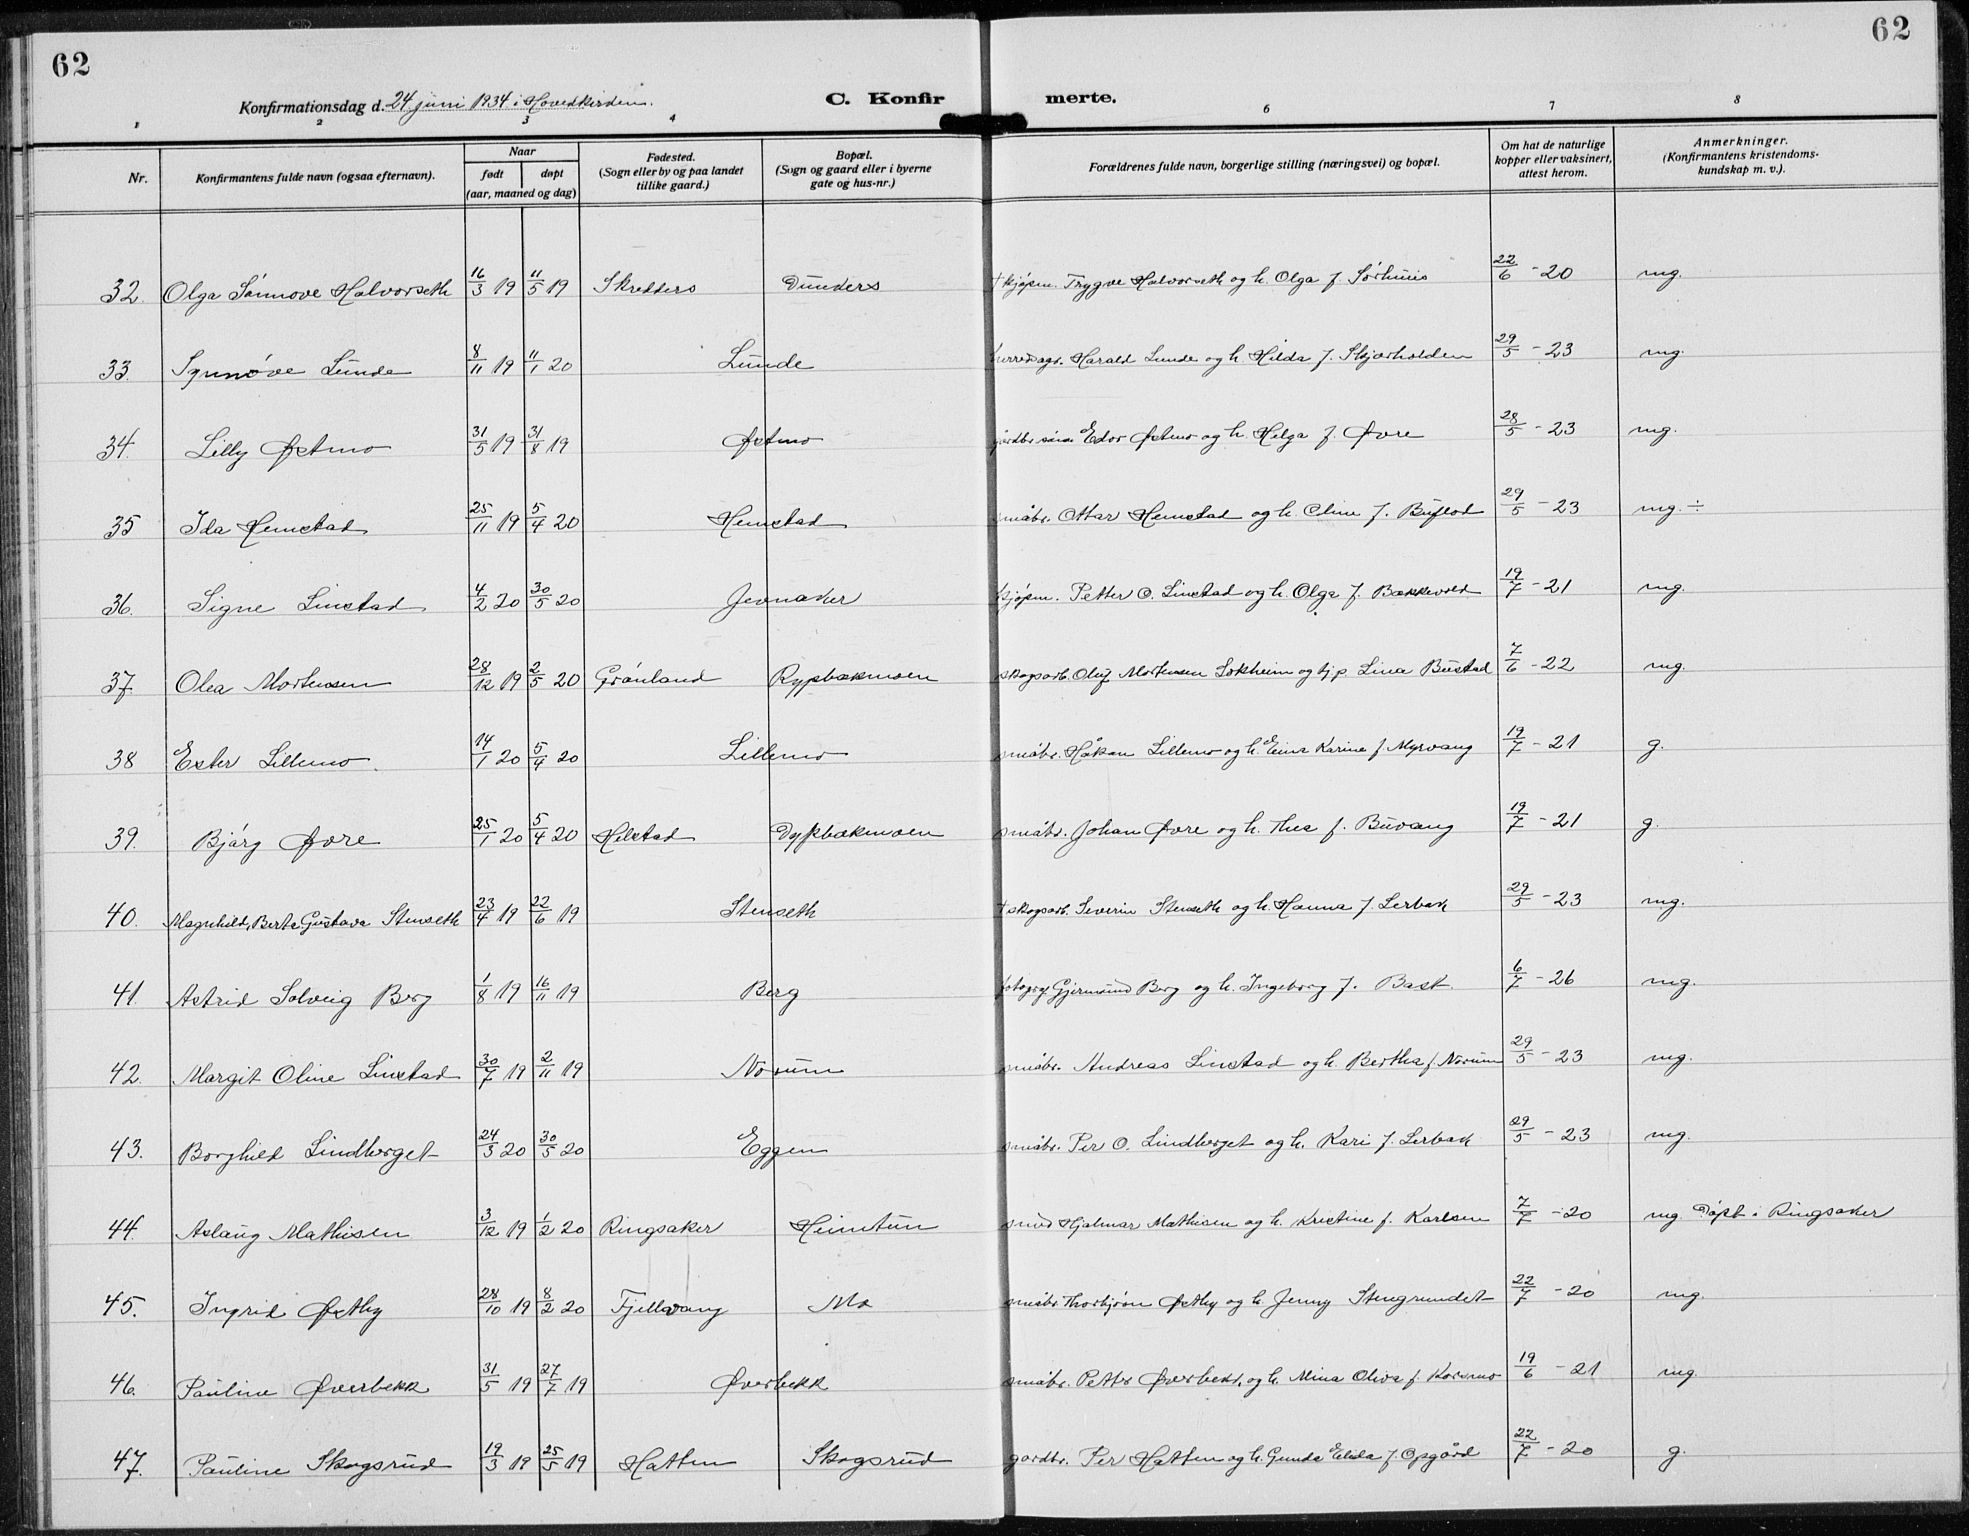 62
62
Konfirmationsdag d. 24 juni 1934 i Hovedkirken.
C. Konfir merte.
1 2 3 4 6 7 8
Nr.
Konfirmantens fulde navn (ogsaa efternavn).
Naar
født døpt
(aar, maaned og dag)
Fødested.
(Sogn eller by og paa landet
tillike gaard.)
Bopæl.
(Sogn og gaard eller i byerne
gate og hus-nr.)
Forældrenes fulde navn, borgerlige stilling (næringsvei) og bopæl.
Om hat de naturlige
kopper eller vaksinert,
attest herom.
Anmerkninger.
(Konfirmantens kristendoms-
kundskap m. v.).
32. Olga Sónnove Halvorseth 16/3 19 11/5 19 Skredders Dunders † kjøpm. Trygve Halvorseth og h. Olga f. Sørhuus 22/6 - 20 mg.
33. Synnóve Lunde 8/11 19 11/1 20 Lunde Harald Lunde og h. Hilda f. Skjærholden 29/5 - 23 mg.
34. Lilly Østmo 31/5 19 31/8 19 Østmo Edor Østmo og h. Helga f. Øvre 28/5 - 23 mg.
35 Ida Hemstad 25/11 19 5/4 20 Hemstad småbr. Ottar Hemstad og h. Oline f. Buflod 29/5 - 23 mg. ÷
36. Signe Linstad 4/2 20 30/5 20 Jevnaker kjøpm. Petter O. Linstad og h. Olga f. Bakkevold 19/7 - 21 mg.
37. Olea Mortensen 28/12 19 2/5 20 Grónland Rypbakmoen skogsarb. Oluf Mortensen Sokheim og tj.p. Lina Bustad 7/6 - 22 mg.
38 Ester Lillemo 14/1 20 5/4 20 Lillemo småbr. Håkan Lillemo og h. Eina Karine f. Myrvang 19/7 - 21 g.
39. Bjórg Øvre 25/1 20 5/4 20 Helstad Dypbakmoen småbr. Johan Øvre og h. Thea f. Buvang 19/7 - 21 g.
40. Magnhild, Berta Gustava Stenseth 23/4 19 22/6 19 Stenseth † skogsarb. Severin Stenseth og h. Hanna f. Lerbak 29/5 - 23 mg.
41. Astrid Solveig Berg 1/8 19 16/11 19 Berg fotogr. Gjermund Berg og h. Ingeborg f. Bast 6/7 - 26 mg.
42. Margit Oline Linstad 30/7 19 2/11 19 Norum småbr. Andreas Linstad og h. Bertha f. Norum 29/5 - 23 mg.
43. Borghild Lindberget 24/3 20 30/5 20 Eggen småbr. Per O. Lindberget og h. Kari f. Lerbak 29/5 - 23 mg.
44. Aslaug Mathisen 3/12 19 1/2 20 Ringsaker Heimtun smed Hjalmar Mathisen og h. Kristine f. Karlsen 7/7 - 20 mg. Døpt i Ringsaker
45. Ingrid Østby 28/10 19 8/2 20 Fjellvang Mo småbr. Thorbjørn Østby og h. Jenny Stengrundet 22/7 - 20 mg.
46. Pauline Øverbekk 31/5 19 27/7 19 Øverbekk småbr. Petter Øverbekk, og h. Mina Oliva f. Korsmo 19/6 - 21 mg.
47. Pauline Skogsrud 19/3 19 25/5 19 Hatten Skogsrud gardbr. Per Hatten og h. Gunda Elida f. Opgård 22/7 - 20 g.